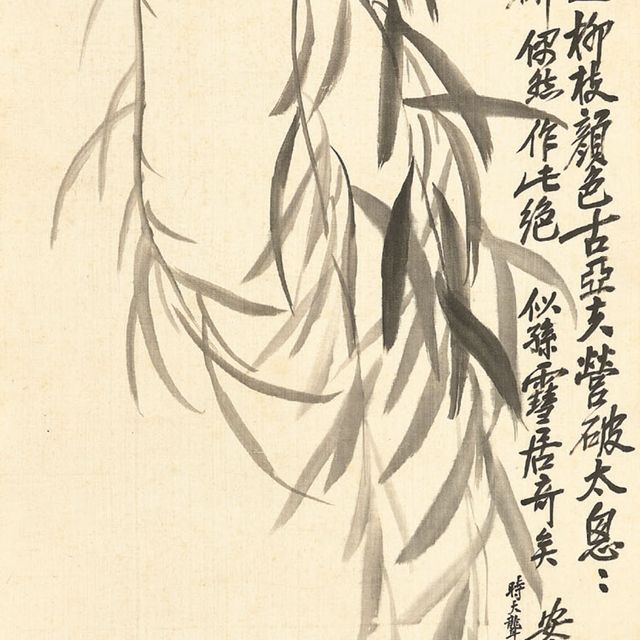 柳枝顏色古亞夫營破太息〻
偶然作此絕 似孫雪居奇矣
時大聾
安